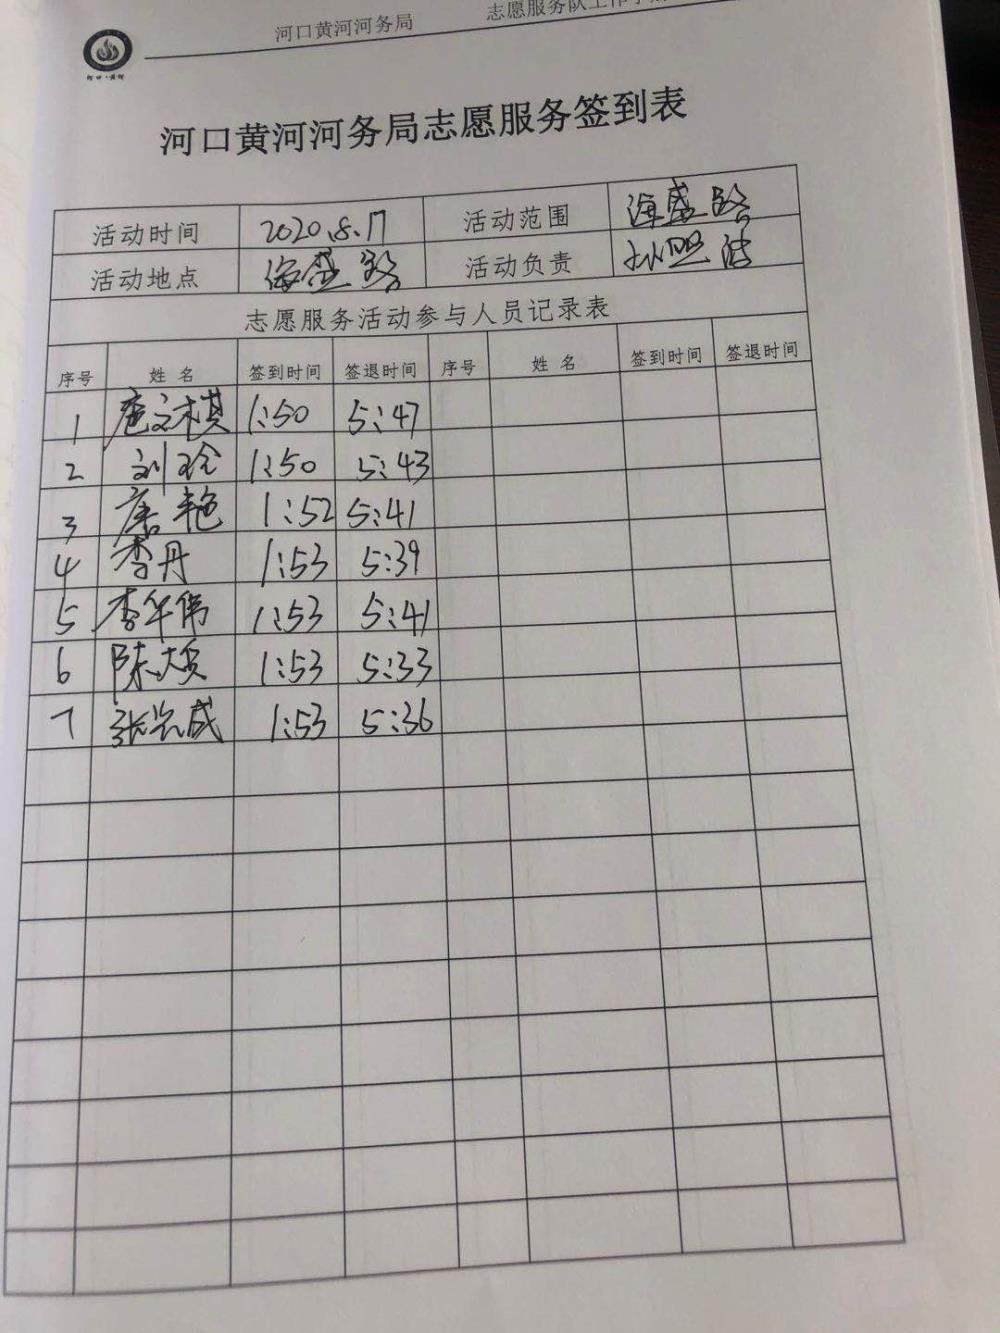 河口黄河河务局 志愿服务队工作手册
河口·黄河
河口黄河河务局志愿服务签到表
活动时间 2020.8.17 活动范围 海盛路
活动地点 海盛路 活动负责
志愿服务活动参与人员记录表
序号 姓名 签到时间 签退时间 序号 姓名 签到时间 签退时间
1 1:50 5:47
2 刘玲 1:50 5:43
3 唐艳 1:52 5:41
4 李丹 1:53 5:39
5 李华伟 1:53 5:41
6 1:53 5:33
7 张兴成 1:53 5:36